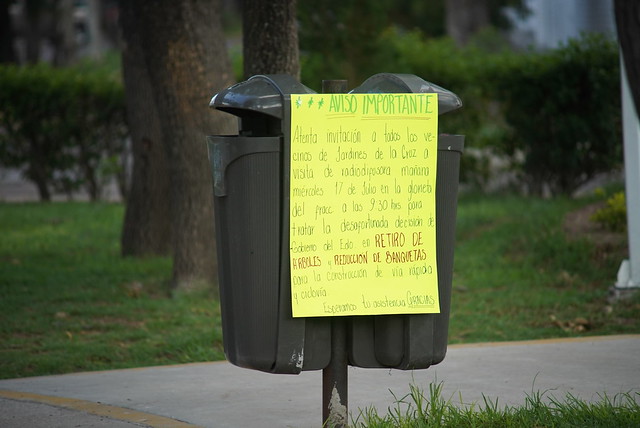 AVISO IMPORTANTE
Atenta invitación a todos los ve-
cinos de Jardines de la Cruz a
visita de radiodifusora mañana
miércoles 17 de Julio en la glorieta
del fracc a las 9:30 hrs para
tratar la desafortunada decisión de
Gobierno del Edo. en RETIRO DE
ARBOLES y REDUCCION DE BANQUETAS
para la construcción de vía rápida
y ciclovía.
Esperamos tu asistencia GRACIAS